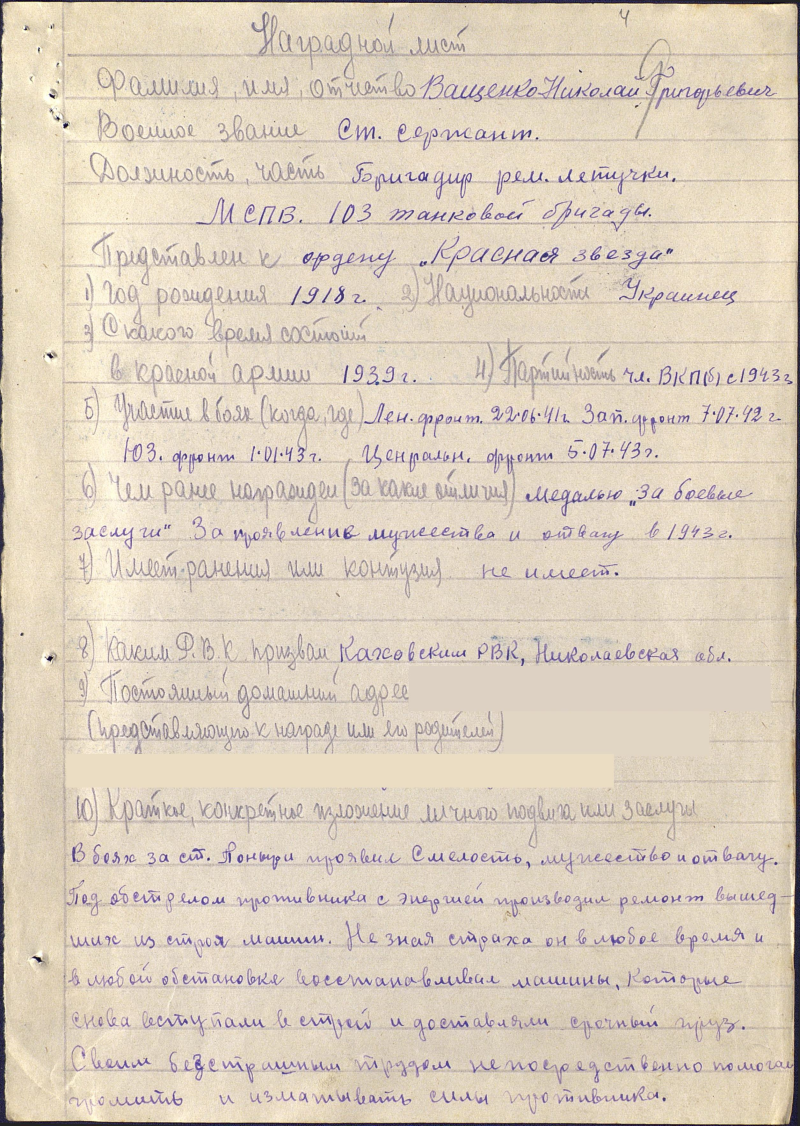 4
Наградной лист
Фамилия, имя, отчество Ващенко Николай Григорьевич
Военное звание Ст. сержант.
Должность, часть Бригадир рем. летучки.
МСПВ. 103 танковой бригады.
Представлен к ордену „Красная звезда"
1) Год рождения 1918 г. 2) Национальность Украинец
3) С какого время состоит
в красной армии 1939 г. 4) Партийность чл. ВКП(б) с 1943 г
5) Участие в боях (когда, где) Лен. фронт. 22.06.41 г. Зап. фронт 7.07.42 г
ЮЗ. фронт 1.01.43 г. Ценральн. фронт 5.07.43 г.
6) Чем ранее награжден (за какие отличия) медалью „За боевые
заслуги" За проявление мужества и отвагу в 1943 г.
7) Имеет ранения или контузия не имеет.
8) Каким Р.В.К призван Каховским РВК, Николаевская обл.
9) Постоянный домашний адрес
(представляющего к награде или его родителей)
10) Краткое, конкретное изложение личного подвига или заслуги
В боях за ст. Поныри проявил Смелость, мужество и отвагу.
Под обстрелом противника с энергией производил ремонт вышед-
ших из строя машин. Не зная страха он в любое время и
в любой обстановке восстанавливал машины, которые
снова вступали в строй и доставляли срочный груз.
Своим безстрашным трудом непосредственно помогал
громить и изматывать силы противника.